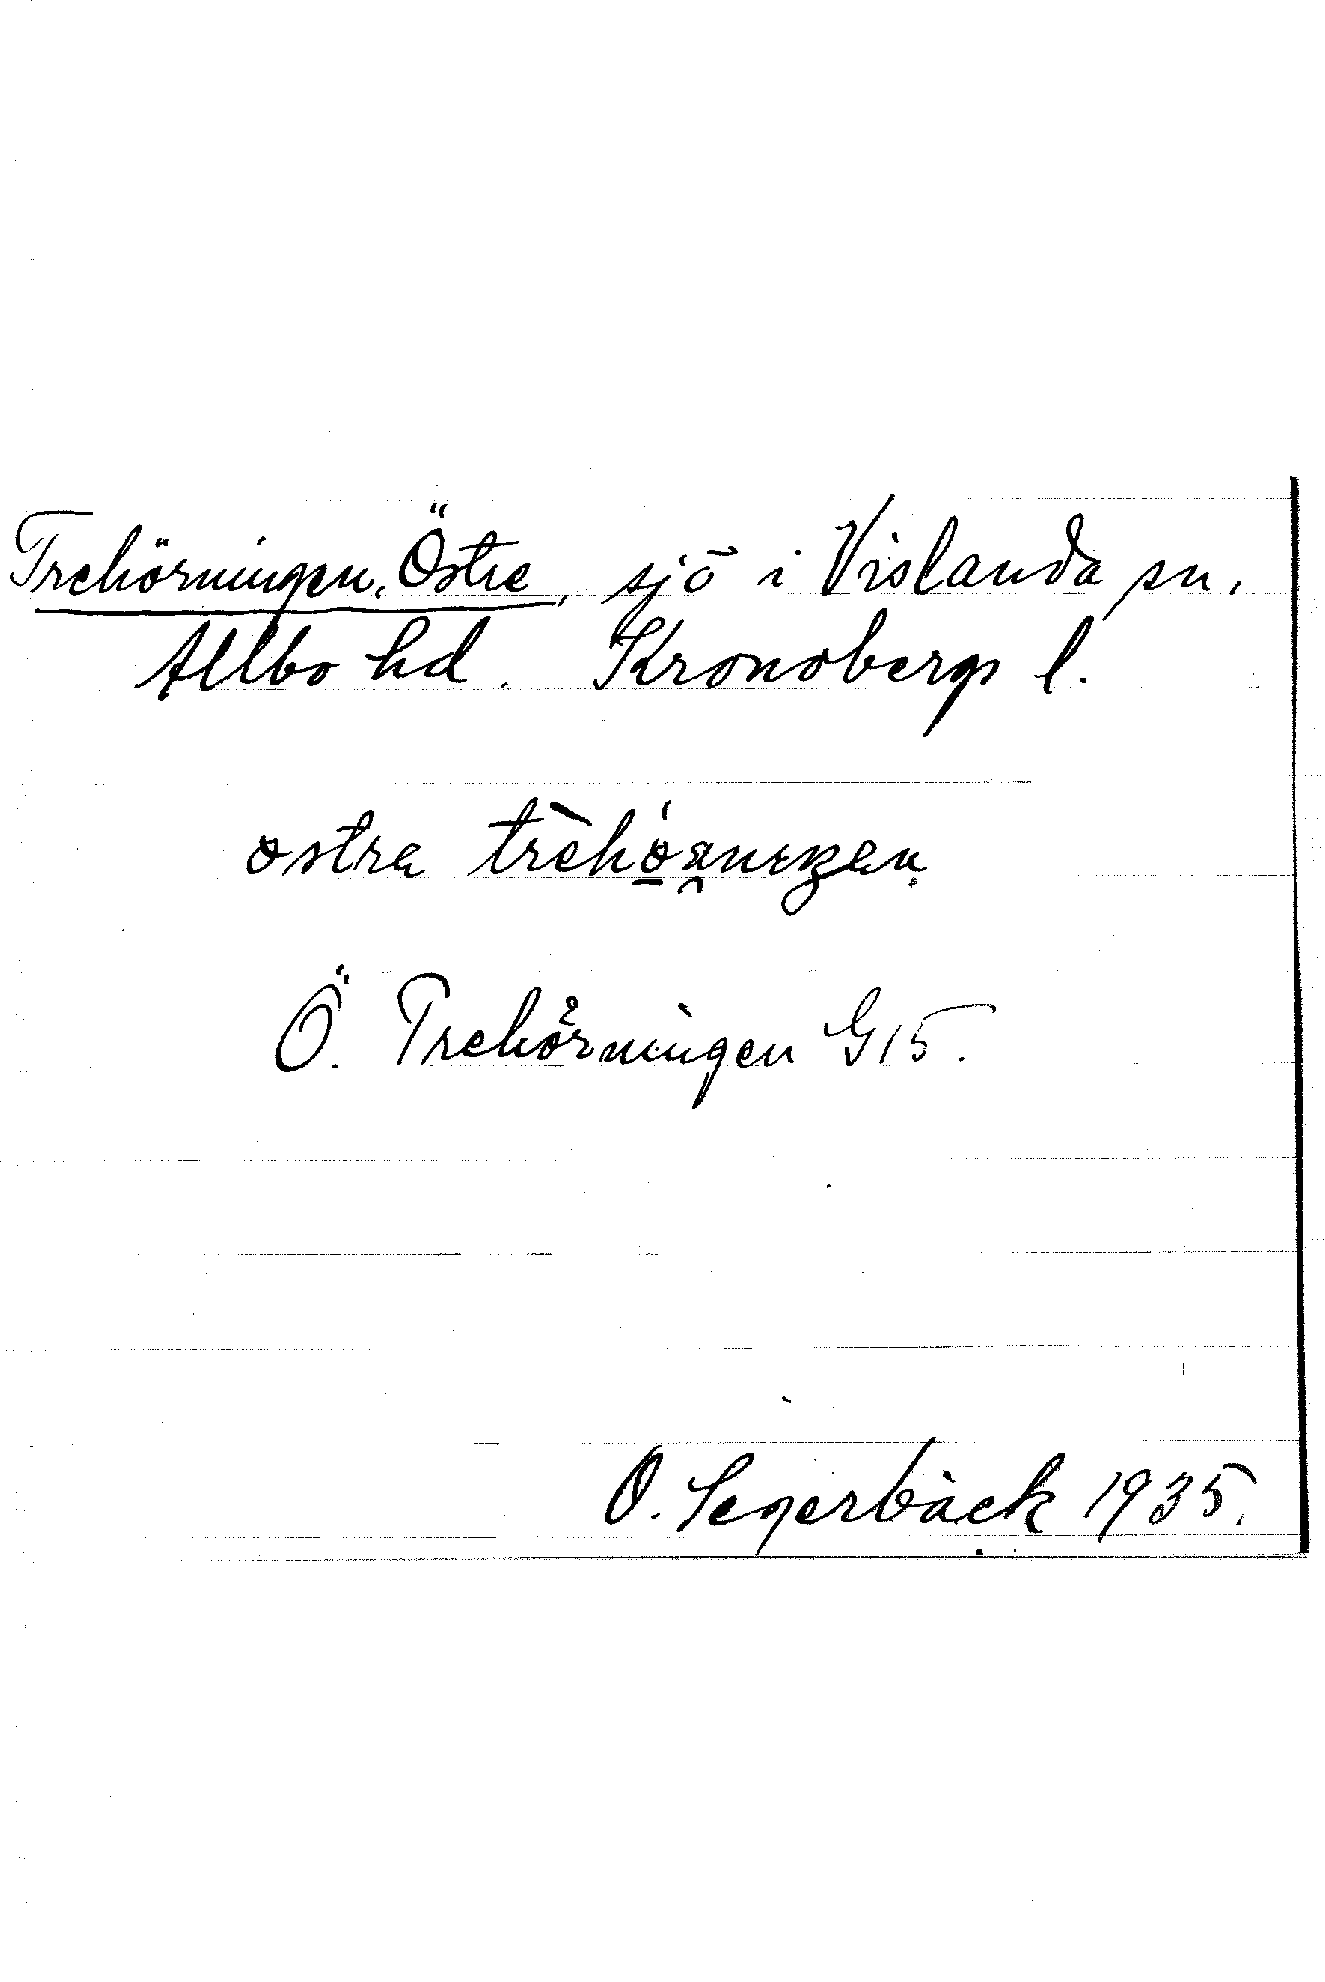 Trehörningen, Östre, sjö i Vislanda sn.
Allbo hd. Kronobergs l.
östra
Ö. Trehörningen G15.
O. Segerbäck 1935.